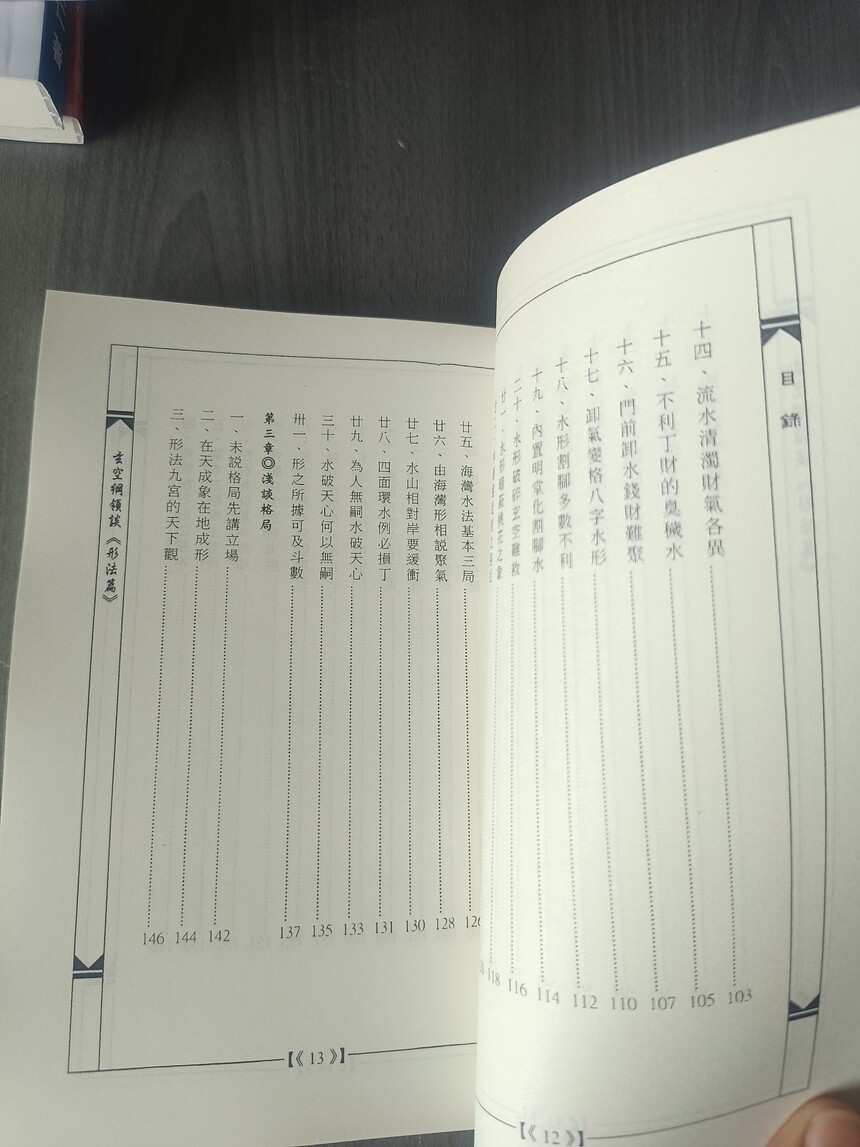 目錄
十四、流水清濁財氣各異 103
十五、不利丁財的臭穢水 105
十六、門前卸水錢財難聚 107
十七、卸氣變格八字水形 110
十八、水形割腳多數不利 112
十九、內置明堂化割腳水 114
二十、水形破碎玄空難救 116
廿一、水形 桃花之象 118
【《12》】
廿五、海灣水法基本三局 126
廿六、由海灣形相說聚氣 128
廿七、水山相對岸要緩衝 130
廿八、四面環水例必損丁 131
廿九、為人無嗣水破天心 133
三十、水破天心何以無嗣 135
卅一、形之所據可及斗數 137
第三章◎淺談格局
一、未說格局先講立場 142
二、在天成象在地成形 144
三、形法九宮的天下觀 146
玄空綱領談《形法篇》
【《13》】